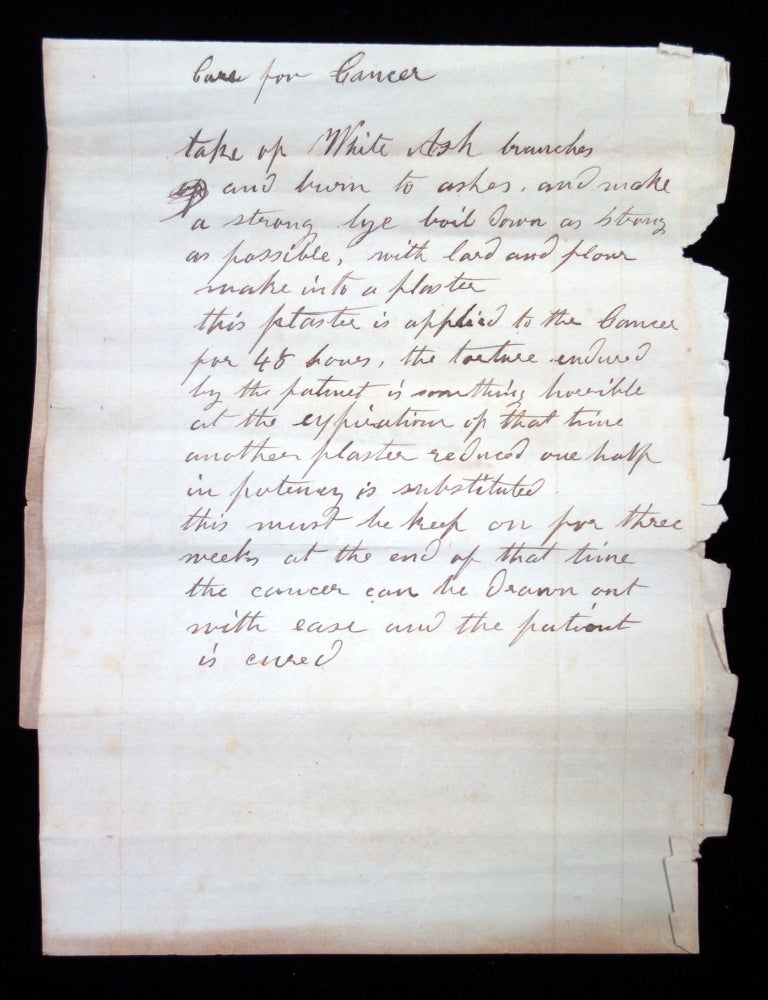 Cure for Cancer
take of White Ash branches
and burn to ashes. and make
a strong lye boil down as strong
as possible, with lard and flour
make into a plaster
this plaster is applied to the Cancer
for 48 hours, the torture endured
by the patinet is something horrible
at the expiration of that time
another plaster reduced one half
in potency is substituted.
this must be keep on for three
weeks at the end of that time
the cancer can be drawn out
with ease and the patient
is cured